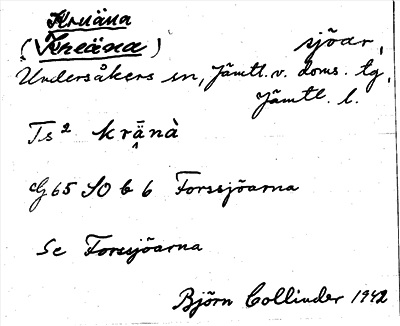 Kruäna
(Kreäna) sjöar,
Undersåkers sn, Jämtl. v. doms. tg,
Jämtl. l.
Ts² kränà
G 65 SO b 6 Forssjöarna
Se Forssjöarna
Björn Collinder 1942